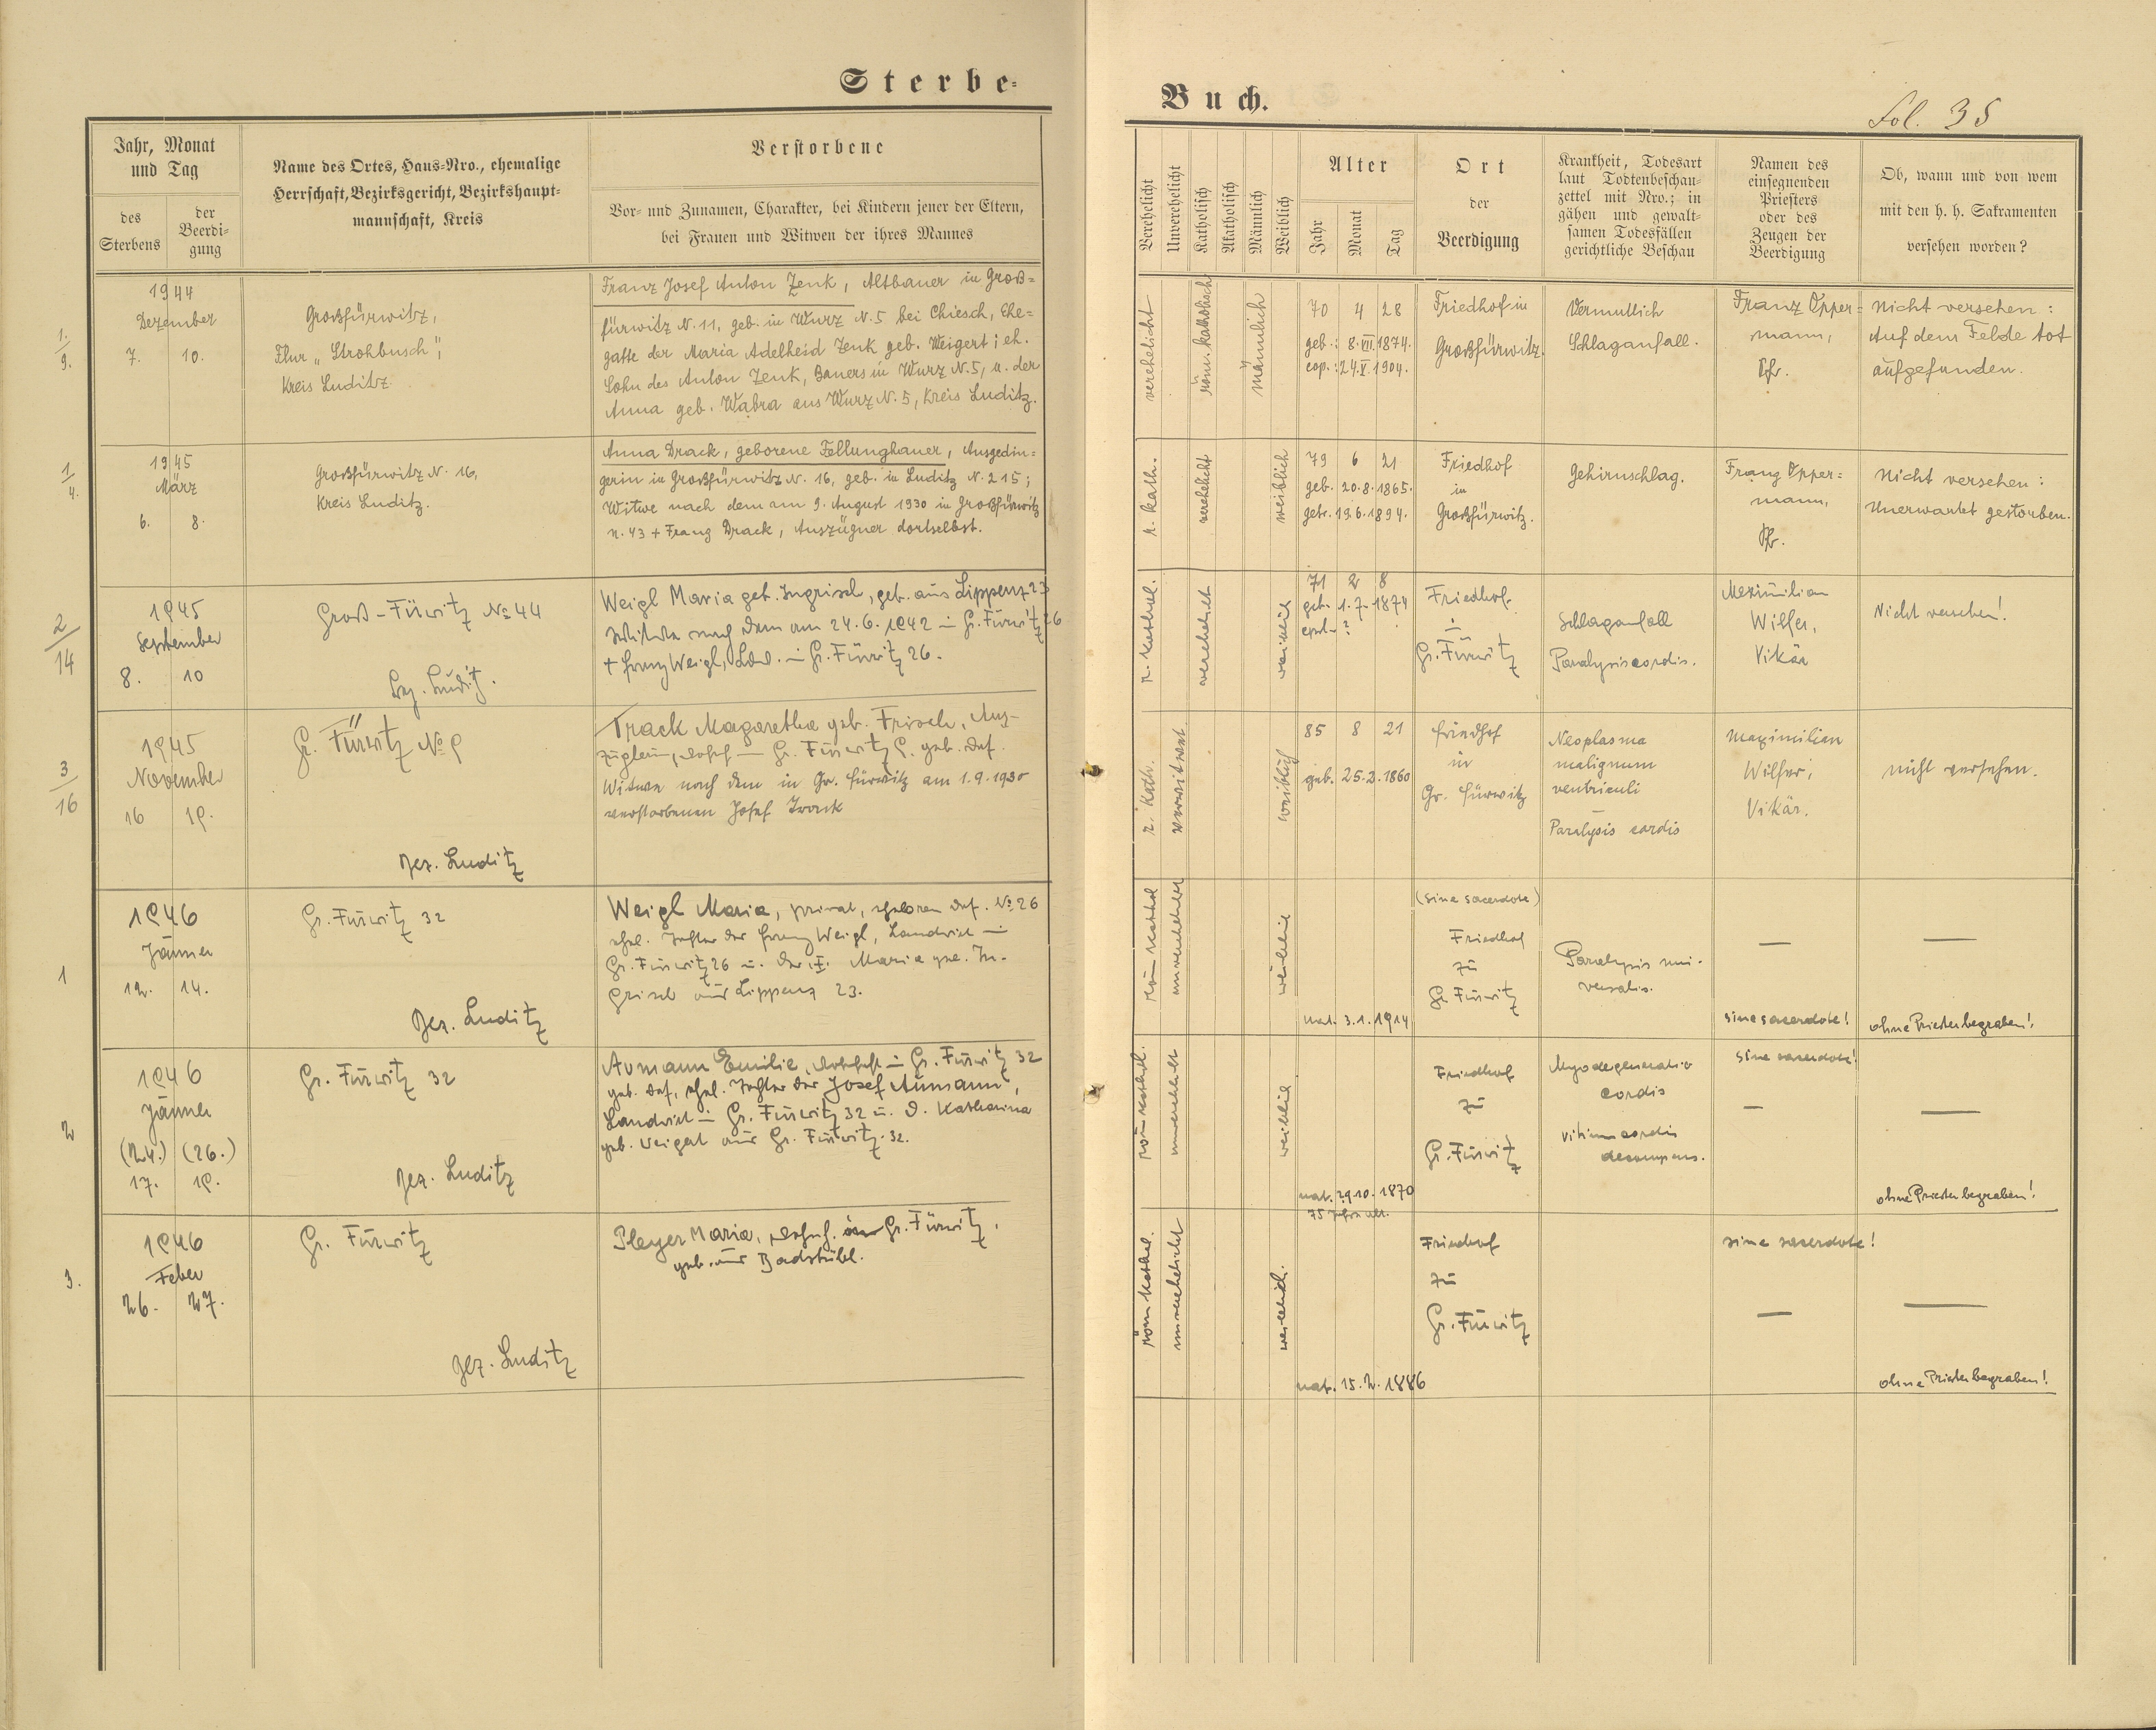 Sterbe-
Buch.
Fol. 35
Jahr, Monat
und Tag
des
Sterbens
der
Beerdi-
gung
Name des Ortes, Haus-Nro., ehemalige
Herrschaft, Bezirksgericht, Bezirkshaupt-
mannschaft, Kreis
Verstorbene
Vor- und Zunamen, Charakter, bei Kindern jener der Eltern,
bei Frauen und Witwen der ihres Mannes
Verehelicht
Unverehelicht
Katholisch
Akatholisch
Männlich
Weiblich
Alter
Jahr
Monat
Tag
Ort
der
Beerdigung
Krankheit, Todesart
laut Todtenbeschau-
zettel mit Nro.; in
gähen und gewalt-
samen Todesfällen
gerichtliche Beschau
Namen des
einsegnenden
Priesters
oder des
Zeugen der
Beerdigung
Ob, wann und von wem
mit den h. h. Sakramenten
versehen worden?
1.
9.
1944
Dezember
7. 10.
Großfürwitz,
Flur „Strohbusch",
Kreis Luditz.
Franz Josef Anton Zenk, Altbauer in Groß=
fürwitz N. 11, geb. in Wurz N. 5 bei Chiesch, Ehe=
gatte der Maria Adelheid Zenk geb. Weigert; eh.
Sohn des Anton Zenk, Bauers in Wurz N. 5, u. der
Anna geb. Wabra aus Wurz N. 5, Kreis Luditz.
verehelicht
röm. katholisch
männlich
70 4 28
geb.: 8. VII. 1874.
cop.: 24. V. 1904.
Friedhof in
Großfürwitz.
Vermutlich
Schlaganfall.
Franz Opper=
mann,
Pfr.
Nicht versehen:
Auf dem Felde tot
aufgefunden.
1
4.
1945
März
6. 8.
Großfürwitz N. 16,
Kreis Luditz.
Anna Drack, geborene Fellunghauer, Ausgedin=
gerin in Großfürwitz N. 16, geb. in Luditz N. 215;
Witwe nach dem am 9. August 1930 in Großfürwitz
N. 43 + Franz Drack, Auszügner dortselbst.
r. kath.
verehelicht
weiblich
79 6 21
geb. 20. 8. 1865.
getr. 19. 6. 1894.
Friedhof
in
Großfürwitz.
Gehirnschlag.
Franz Opper=
mann,
Pfr.
Nicht versehen:
Unerwartet gestorben.
2
14
1945
September
8. 10
Groß-Fürwitz No 44
Bez. Luditz.
Weigl Maria geb. Ingrisch, geb. aus Lippenz 23
Witwe nach dem am 24. 6. 1942 in Gr. Fürwitz 26
+ Franz Weigl, Ldw. in Gr. Fürwitz 26.
r. kathol.
verehelicht
weiblich
71 2 8
geb. 1. 7. 1874
cpul. ?
Friedhof
in
Gr. Fürwitz
Schlaganfall
Paralysis cordis.
Maximilian
Wilfer,
Vikär
Nicht versehen!
3
16
1945
November
16 19.
Gr. Fürwitz No 9
Bez. Luditz
Track Magaretha geb. Frisch, Aus-
züglerin, wohnh. in Gr. Fürwitz 9. geb. das.
Witwe nach dem in Gr. Fürwitz am 1. 9. 1930
verstorbenen Josef Track
r. kath.
verwitwet
weiblich
85 8 21
geb. 25. 2. 1860
Friedhof
in
Gr. Fürwitz
Neoplasma
malignum
ventriculi
Paralysis cordis
Maximilian
Wilfer,
Vikär.
nicht versehen.
1
1946
Jänner
12. 14.
Gr. Fürwitz 32
Bez. Luditz
Weigl Maria, privat, geboren das. No 26
ehel. Tochter des Franz Weigl, Landwirt in
Gr. Fürwitz 26 u. der Maria geb. In-
grisch aus Lippenz 23.
röm kathol
unverehelicht
weiblich
nat. 3. 1. 1914
(sine sacerdote)
Friedhof
zu
Gr. Fürwitz
Paralysis uni-
versalis.
—
sine sacerdote!
—
ohne Priester begraben!
2
1946
Jänner
(24.) (26.)
17. 19.
Gr. Fürwitz 32
Bez. Luditz
Aumann Emilie, wohnhaft in Gr. Fürwitz 32
geb. das., ehel. Tochter des Josef Aumann,
Landwirt in Gr. Fürwitz 32 u. d. Katharina
geb. Weigert aus Gr. Fürwitz 32.
röm kathol.
unverehelicht
weiblich
nat. 29. 10. 1870
75 Jahre alt.
Friedhof
zu
Gr. Fürwitz
Myodegeneratio
cordis
vitium cordis
decompens.
sine sacerdote!
—
—
ohne Priester begraben!
3.
1946
Feber
26. 27.
Gr. Fürwitz
Bez. Luditz
Pleyer Maria, wohnh. Gr. Fürwitz,
geb. aus Badstübl.
röm kathol.
unverehelicht
weiblich.
nat. 15. 2. 1886
Friedhof
zu
Gr. Fürwitz
sine sacerdote!
—
—
ohne Priester begraben!